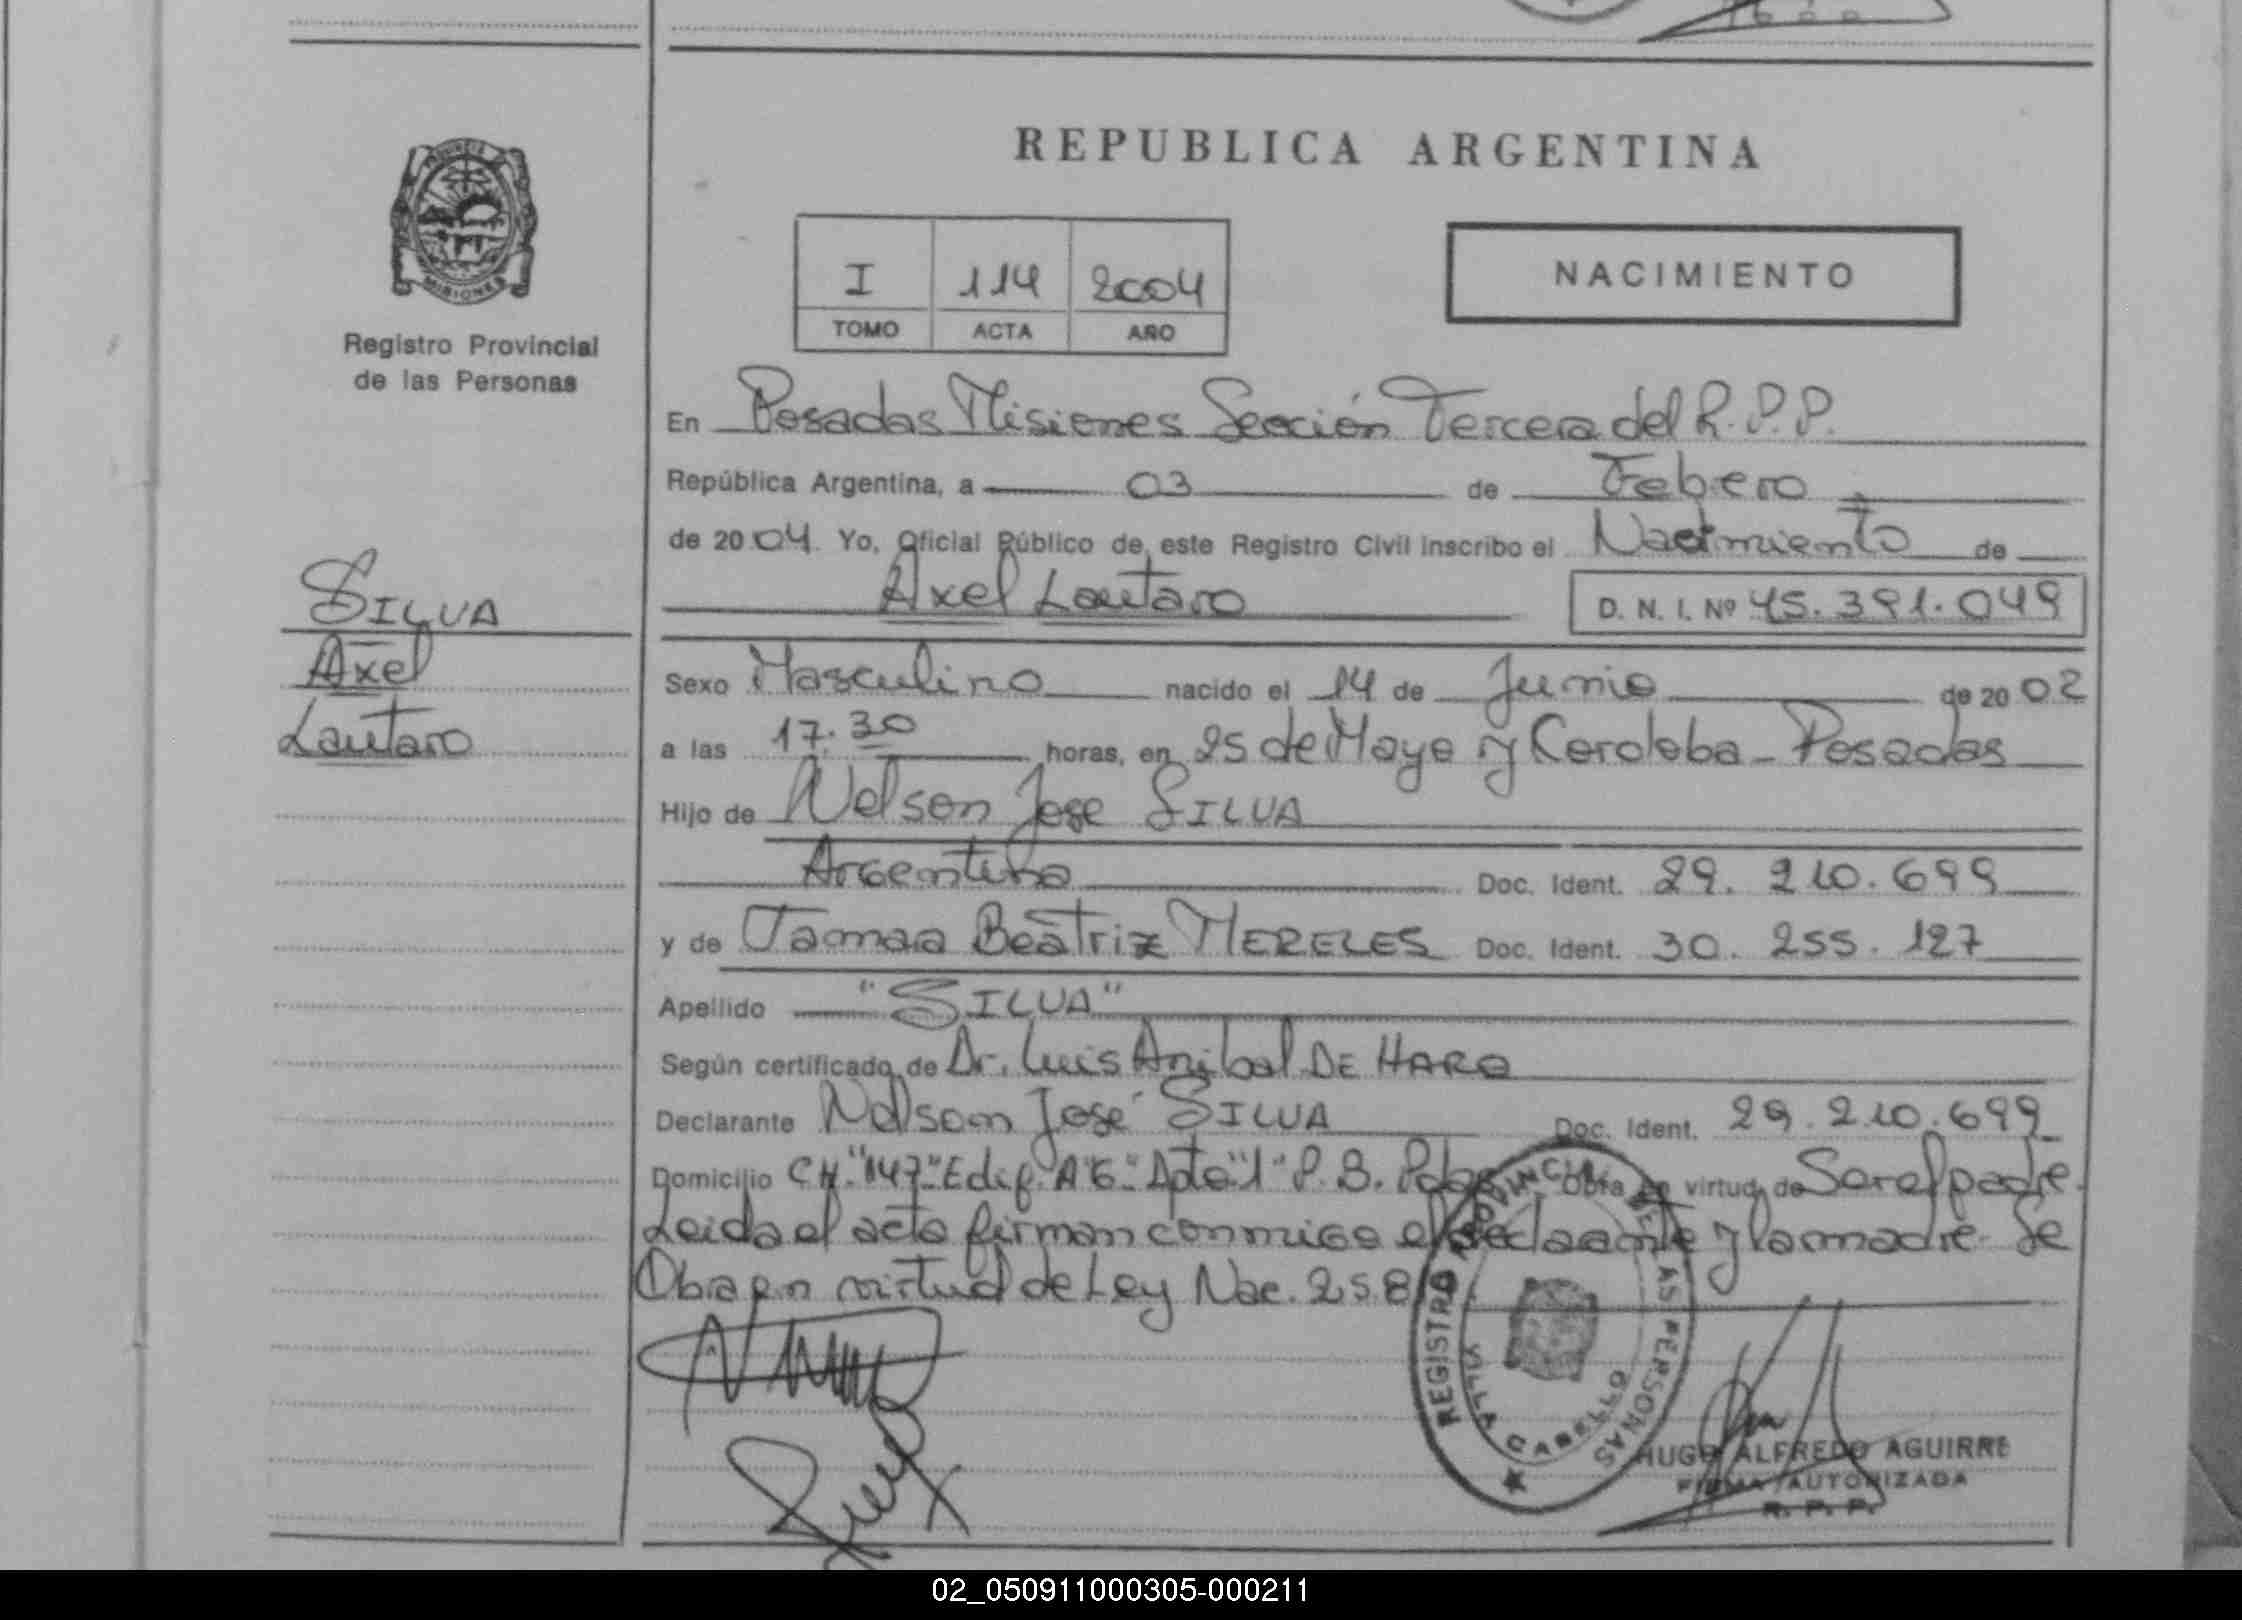 REPUBLICA ARGENTINA
PROVINCIA
MISIONES
Registro Provincial
de las Personas
I 114 2004
TOMO ACTA AÑO
NACIMIENTO
En Posadas Misiones Sección Tercera del R.P.P.
República Argentina, a 03 de Febrero
de 2004. Yo, Oficial Público de este Registro Civil inscribo el Nacimiento de
Axel Lautaro D. N. I. Nº 45.391.049
SILVA
Axel
Lautaro
Sexo Masculino nacido el 14 de Junio de 2002
a las 17.30 horas, en 25 de Mayo y Cordoba - Posadas
Hijo de Nelson Jose SILVA
Argentina Doc. Ident. 29. 210. 699
y de Tamara Beatriz MERELES Doc. Ident. 30. 255. 127
Apellido "SILVA"
Según certificado de Dr. Luis Anibal DE HARO
Declarante Nelson José SILVA Doc. Ident. 29. 210. 699
Domicilio CH."147" Edif. "A6" Apto "1" P. B. Pdas Obra en virtud de Ser el padre.
Leida el acta firman conmigo el declarante y la madre. Se
Obra en virtud de Ley Nac. 25.819.
REGISTRO PROVINCIAL DE LAS PERSONAS
VILLA CABELLO
HUGO ALFREDO AGUIRRE
FIRMA AUTORIZADA
R. P. P.
02_050911000305-000211